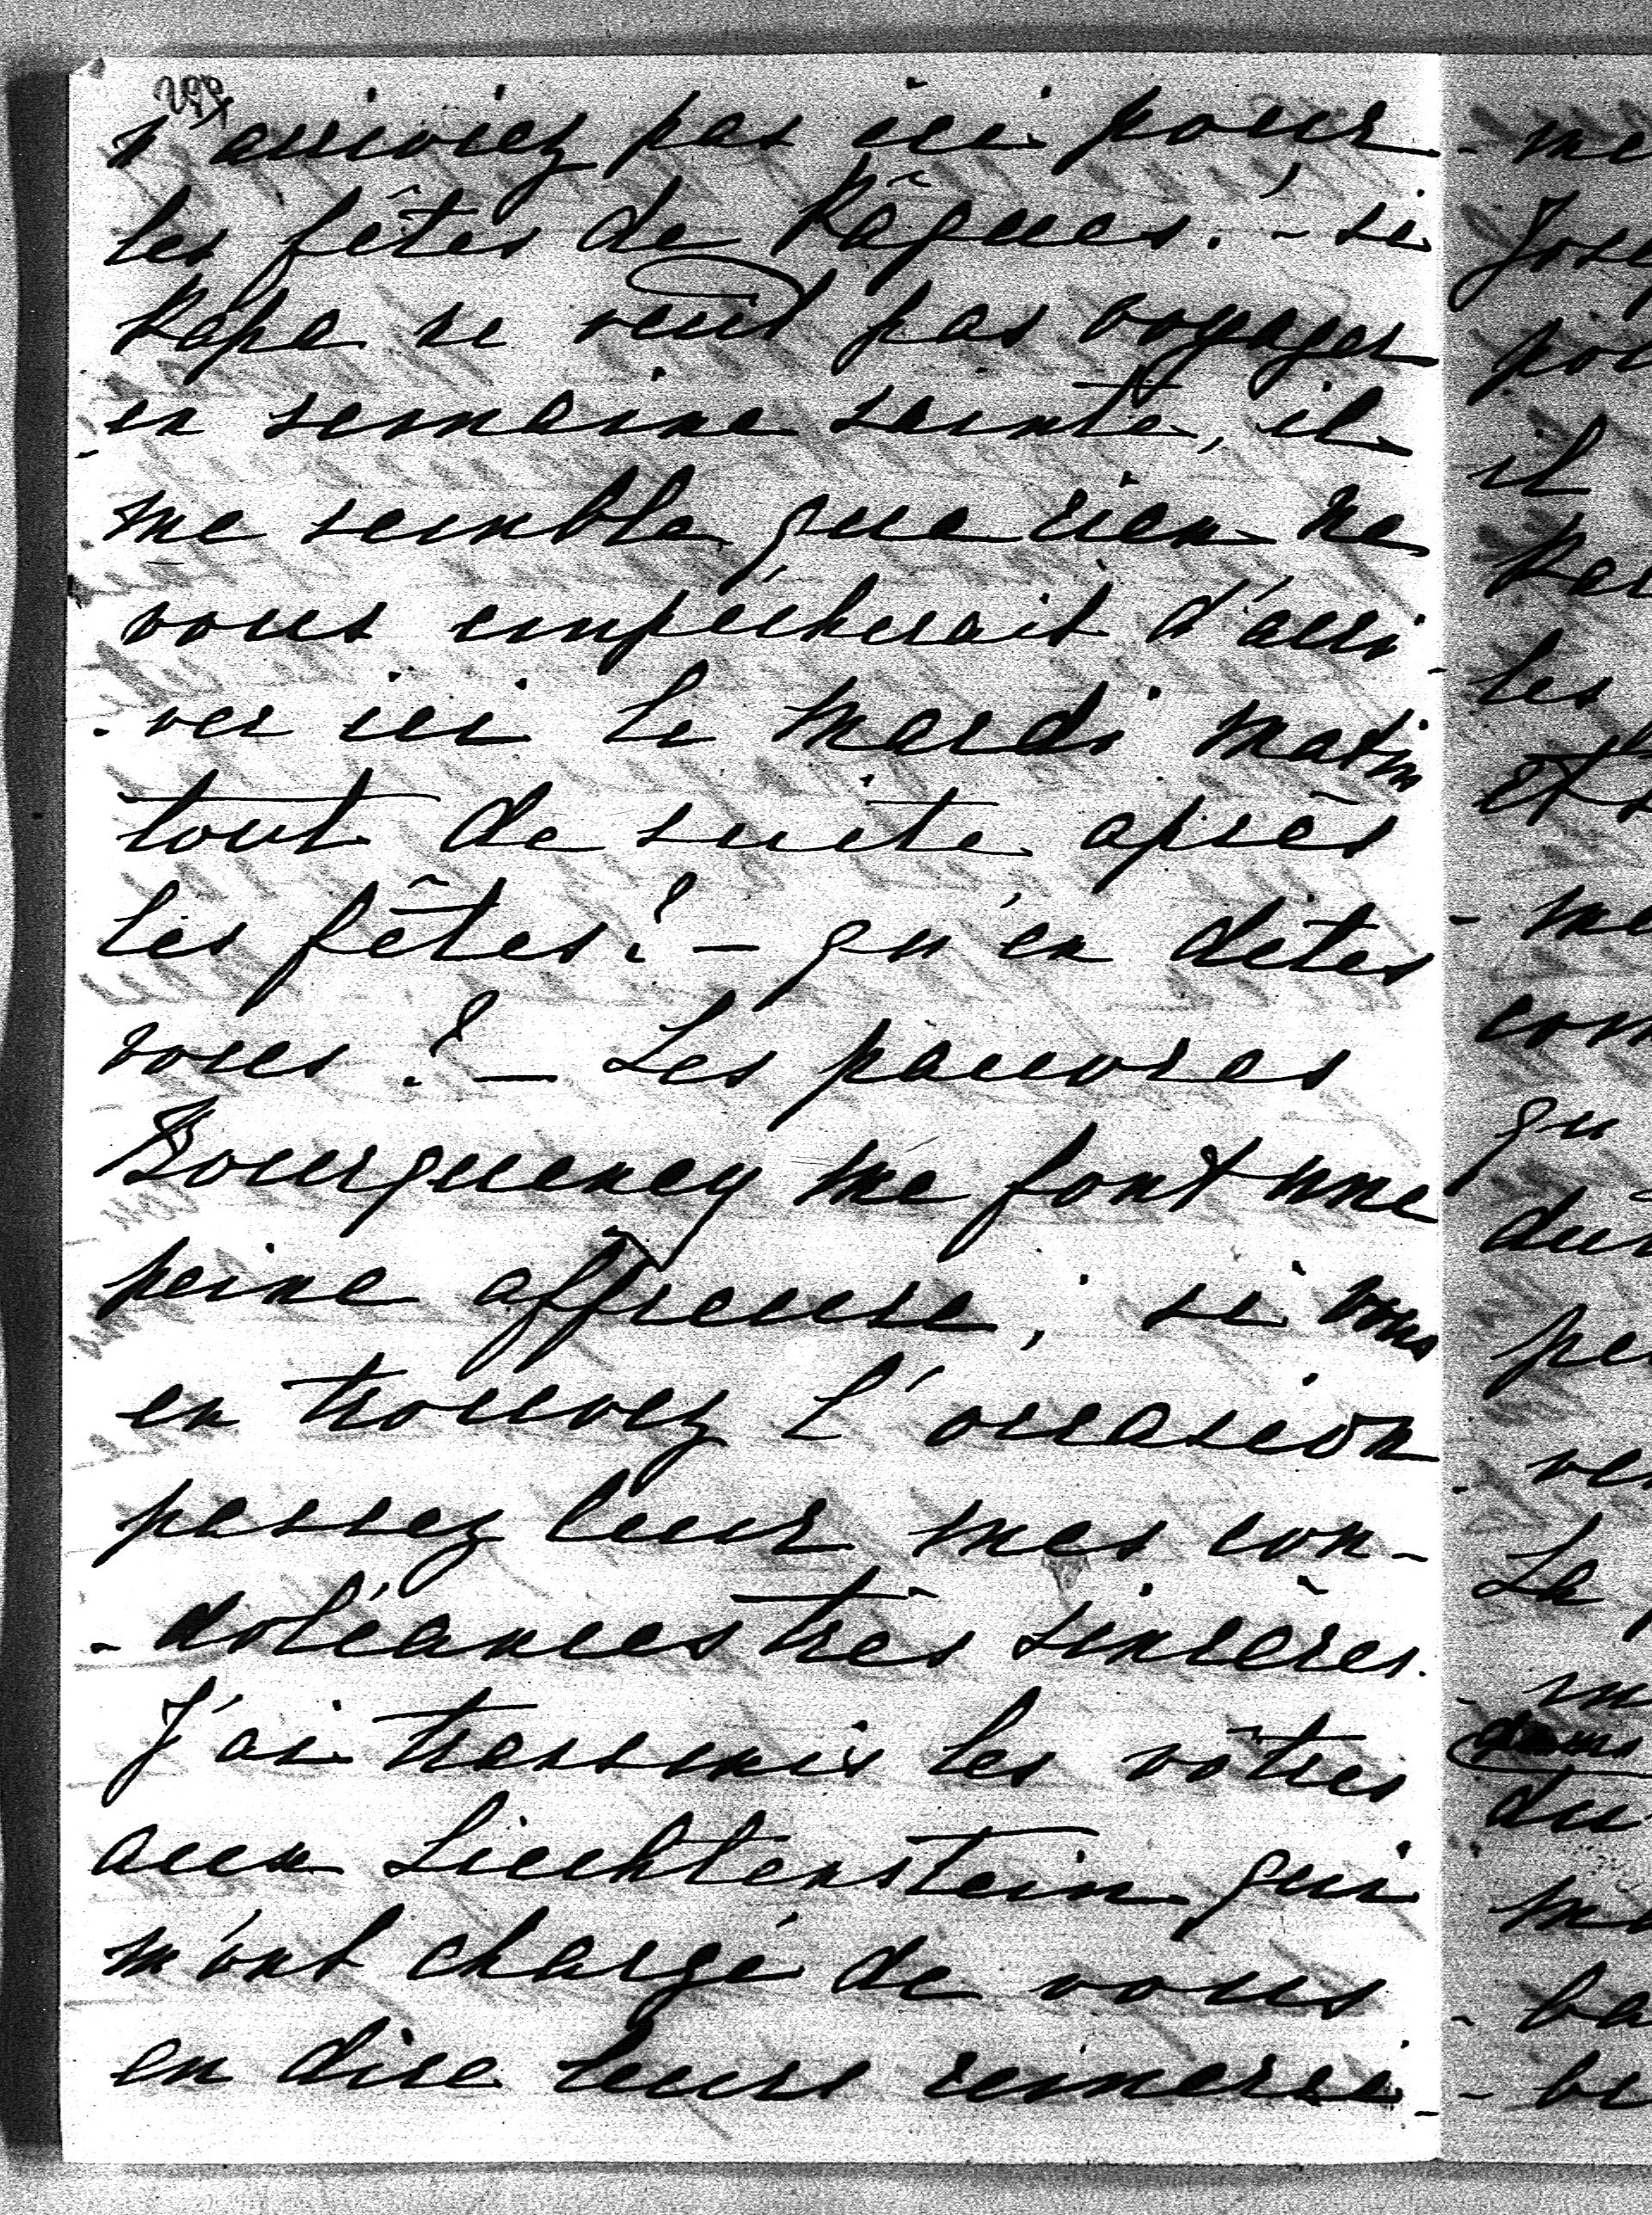 n'arriviez pas ici pour
les fêtes de Pâques! - si
Papa ne veut pas voyager
en semaine sainte, il
me semble que rien ne
vous empêcherait d'arri-
-ver ici le mardi matin
tout de suite après
les fêtes? - qu'en dites
vous? - Les pauvres
Bourqueney me font une
peine affreuse, si vous
en trouvez l'occasion
passez leur mes con-
-doléances très sincères.
J'ai transmis les vôtres
aux Liechtenstein qui
m'ont chargé de vous
en dire leurs remerci-